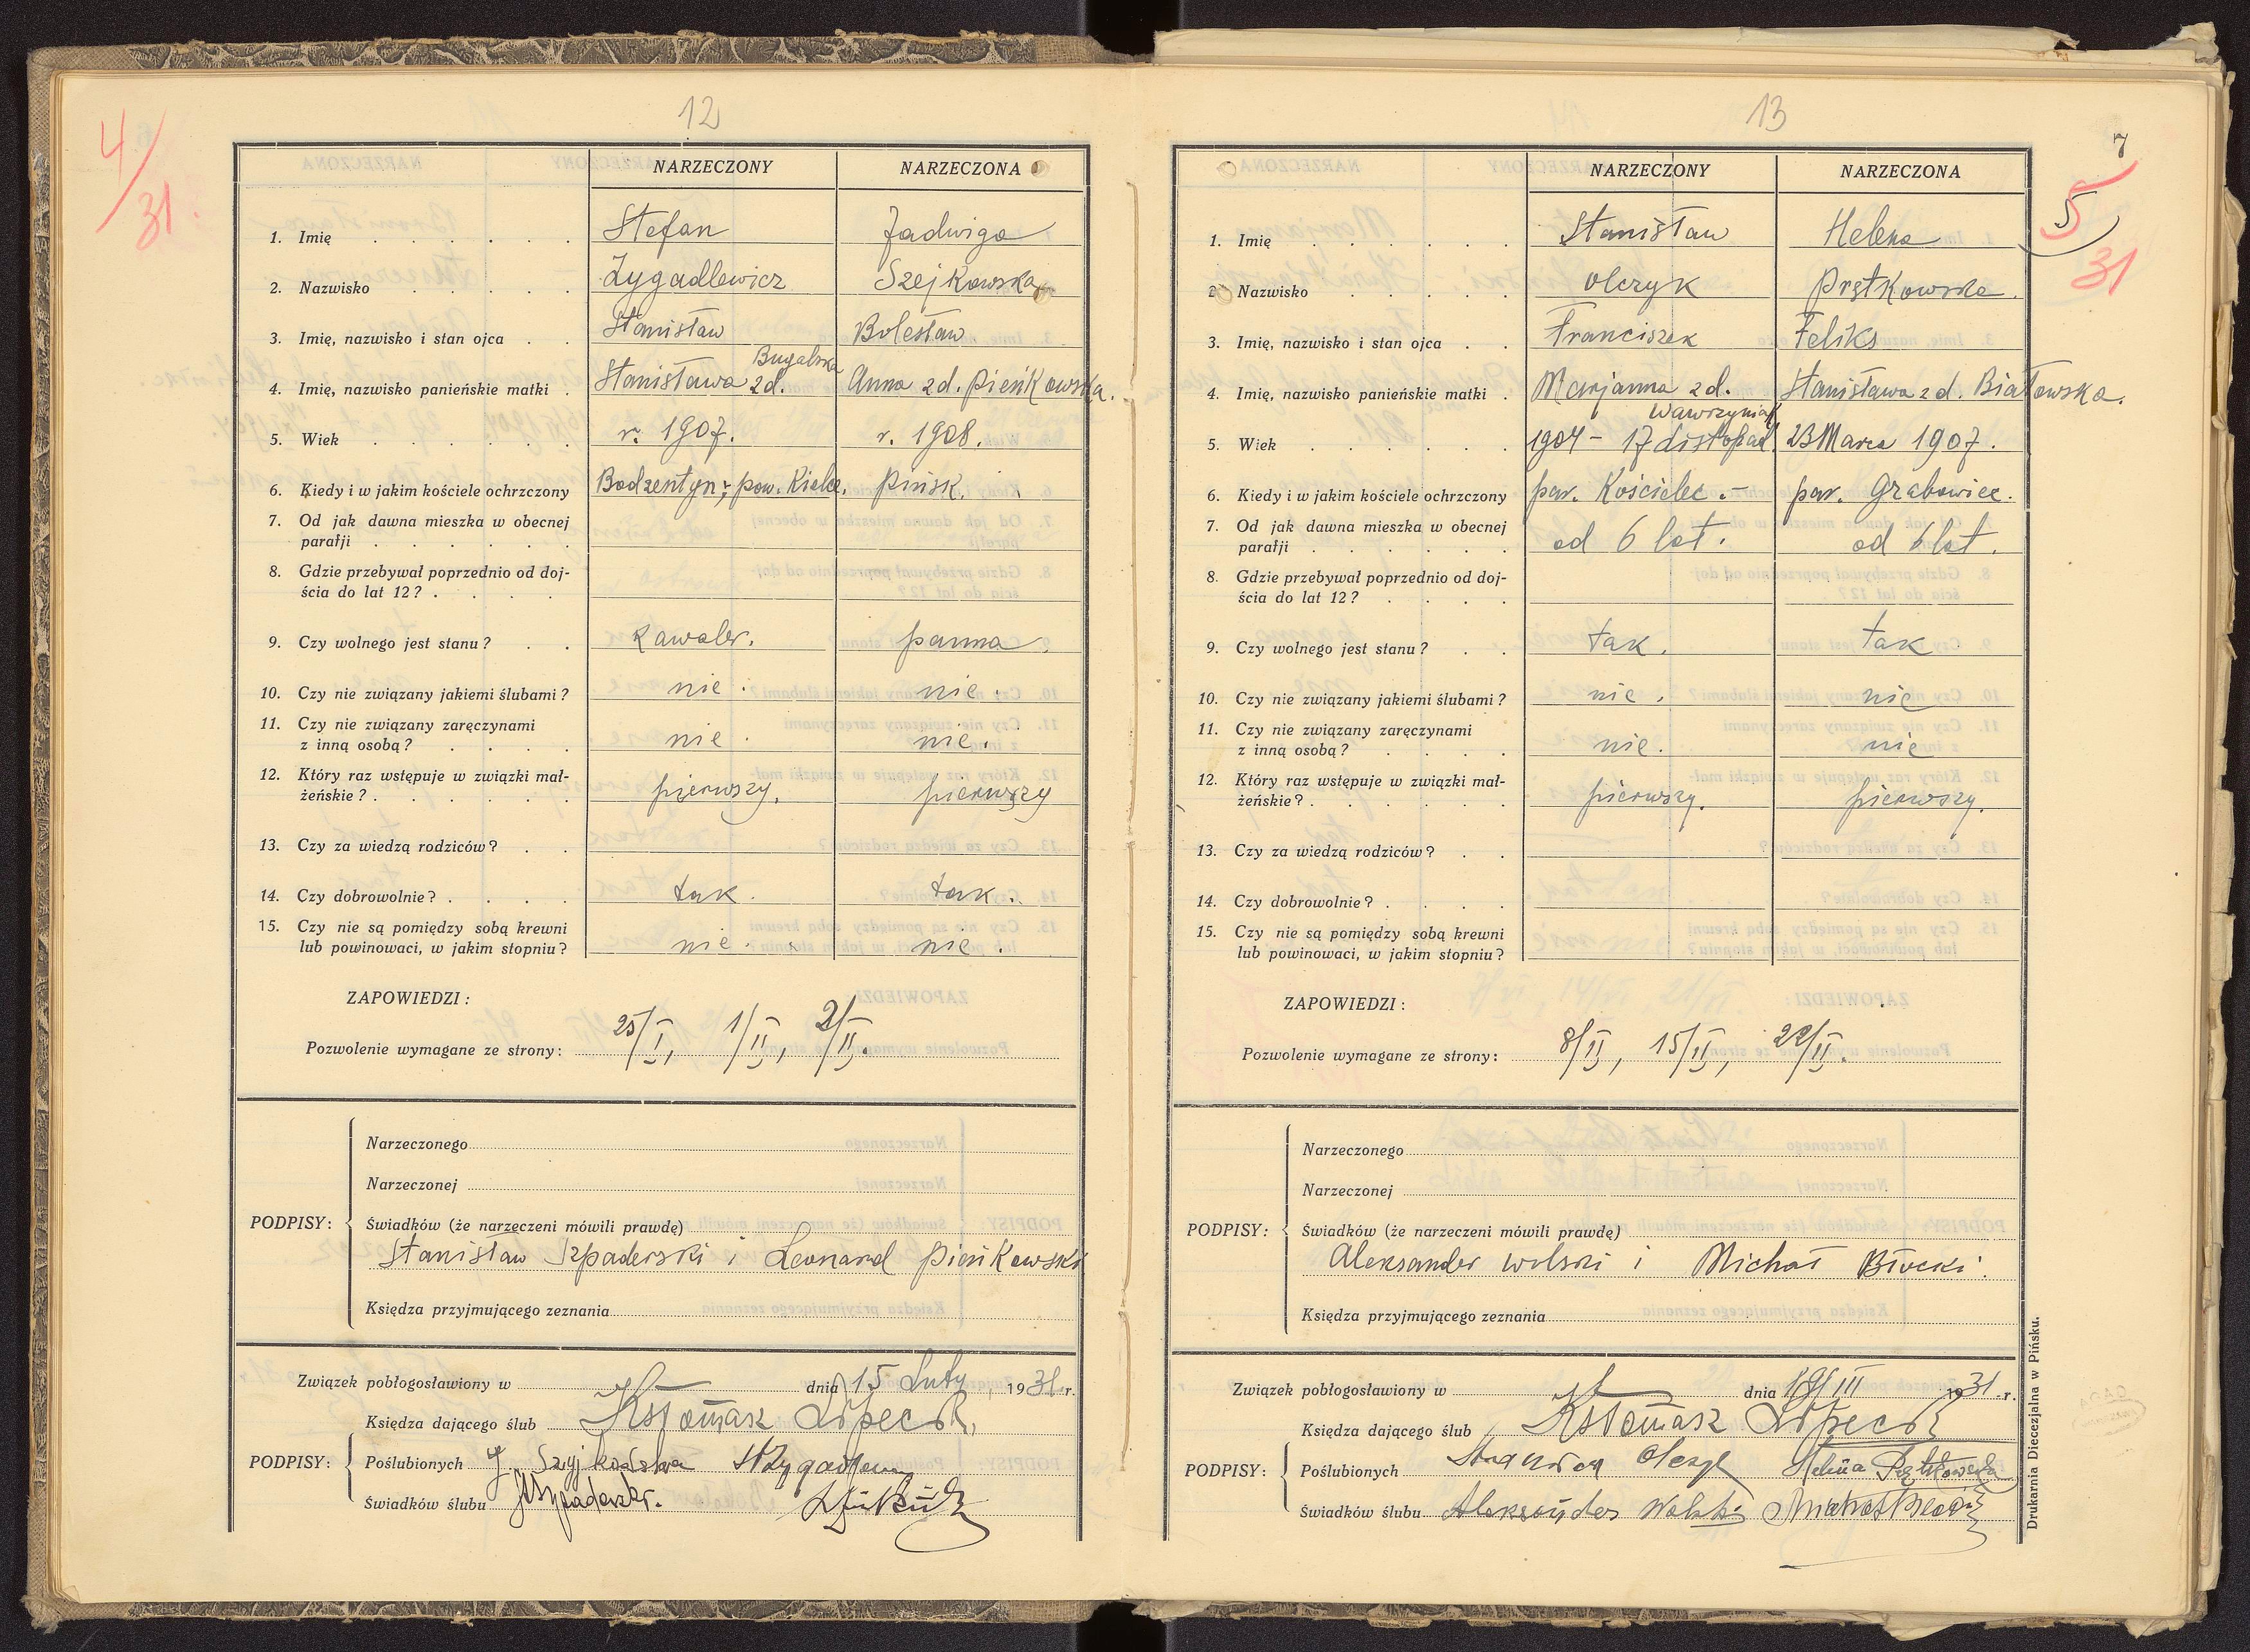 12
4/31.
NARZECZONY NARZECZONA
1. Imię Stefan Jadwiga
2. Nazwisko Zygadlewicz Szejkowska
3. Imię, nazwisko i stan ojca Stanisław Bolesław
Bugalska
4. Imię, nazwisko panieńskie matki Stanisława zd. Anna zd. Pieńkowska.
5. Wiek r. 1907. r. 1908.
6. Kiedy i w jakim kościele ochrzczony Bodzentyn; pow. Kielce. Pińsk.
7. Od jak dawna mieszka w obecnej
parafji
8. Gdzie przebywał poprzednio od doj-
ścia do lat 12?
9. Czy wolnego jest stanu? kawaler. panna
10. Czy nie związany jakiemi ślubami? nie. nie.
11. Czy nie związany zaręczynami
z inną osobą? nie. nie.
12. Który raz wstępuje w związki mał-
żeńskie? pierwszy. pierwszy
13. Czy za wiedzą rodziców?
14. Czy dobrowolnie? tak. tak.
15. Czy nie są pomiędzy sobą krewni
lub powinowaci, w jakim stopniu? nie. nie.
ZAPOWIEDZI:
Pozwolenie wymagane ze strony: 25/I, 1/II, 2/II.
Narzeczonego
Narzeczonej
PODPISY: Świadków (że narzeczeni mówili prawdę)
Stanisław Szpaderski i Leonard Pieńkowski
Księdza przyjmującego zeznania
Związek pobłogosławiony w dnia 15 Luty, 1931.r.
Księdza dającego ślub Ks Tomasz
PODPISY: Poślubionych J. Szejkowska
Świadków ślubu
13
7
5
5
31
NARZECZONY NARZECZONA
1. Imię Stanisław Helena
2. Nazwisko Olczyk Prętkowska.
3. Imię, nazwisko i stan ojca Franciszek Feliks
4. Imię, nazwisko panieńskie matki Marjanna zd. Stanisława zd. Białowska.
Wawrzyniak
5. Wiek 1904 - 17 listopad 23 Marca 1907.
6. Kiedy i w jakim kościele ochrzczony par. Kościelec.- par. Grabowiec.
7. Od jak dawna mieszka w obecnej
parafji od 6 lat. od 6 lat.
8. Gdzie przebywał poprzednio od doj-
ścia do lat 12?
9. Czy wolnego jest stanu? tak. tak
10. Czy nie związany jakiemi ślubami? nie. nie
11. Czy nie związany zaręczynami
z inną osobą? nie. nie
12. Który raz wstępuje w związki mał-
żeńskie? pierwszy. pierwszy.
13. Czy za wiedzą rodziców?
14. Czy dobrowolnie?
15. Czy nie są pomiędzy sobą krewni
lub powinowaci, w jakim stopniu?
ZAPOWIEDZI:
Pozwolenie wymagane ze strony: 8/II, 15/II, 22/II.
Narzeczonego
Narzeczonej
PODPISY: Świadków (że narzeczeni mówili prawdę)
Aleksander Wolski i Michał Błocki.
Księdza przyjmującego zeznania
Związek pobłogosławiony w dnia III 1931.r.
Księdza dającego ślub Ks Tomasz
PODPISY: Poślubionych Helena
Świadków ślubu Aleksander Wolski
Drukarnia Diecezjalna w Pińsku.